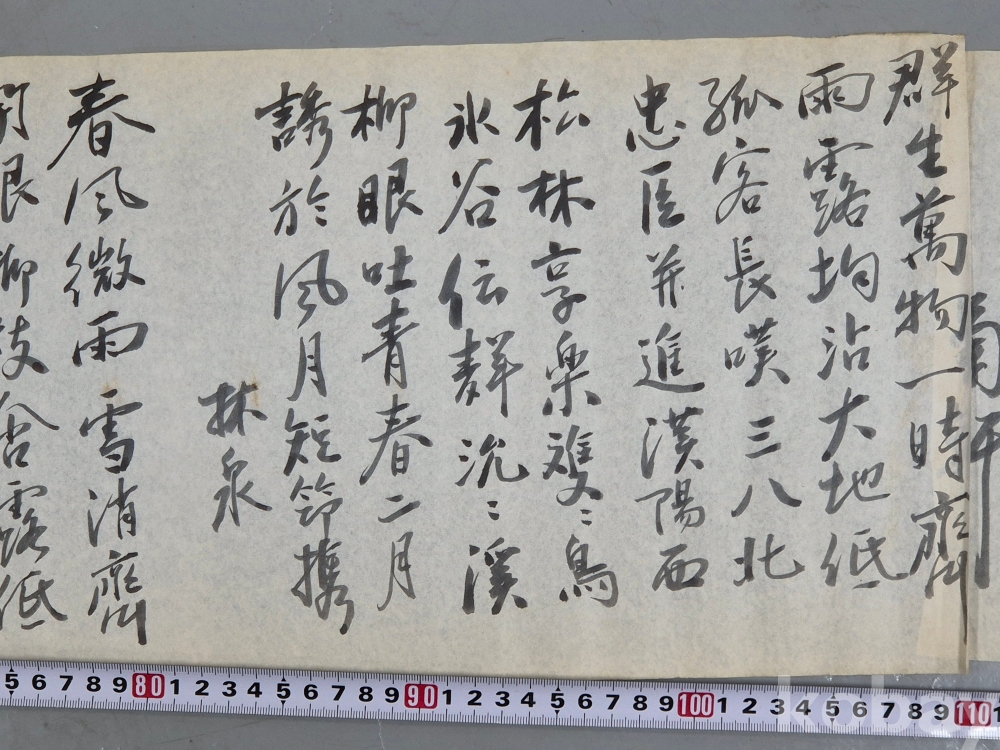 群生萬物一時齊
雨露均沾大地低
孤客長嘆三八北
忠臣并進漢陽西
松林享樂雙〻鳥
氷谷伝群沈〻溪
柳眼吐青春二月
誘於風月短筇携
林泉
春風微雨雪消齊
柳枝含露低
5 6 7 8 9 80 1 2 3 4 5 6 7 8 9 90 1 2 3 4 5 6 7 8 9 100 1 2 3 4 5 6 7 8 9 110 1
koba